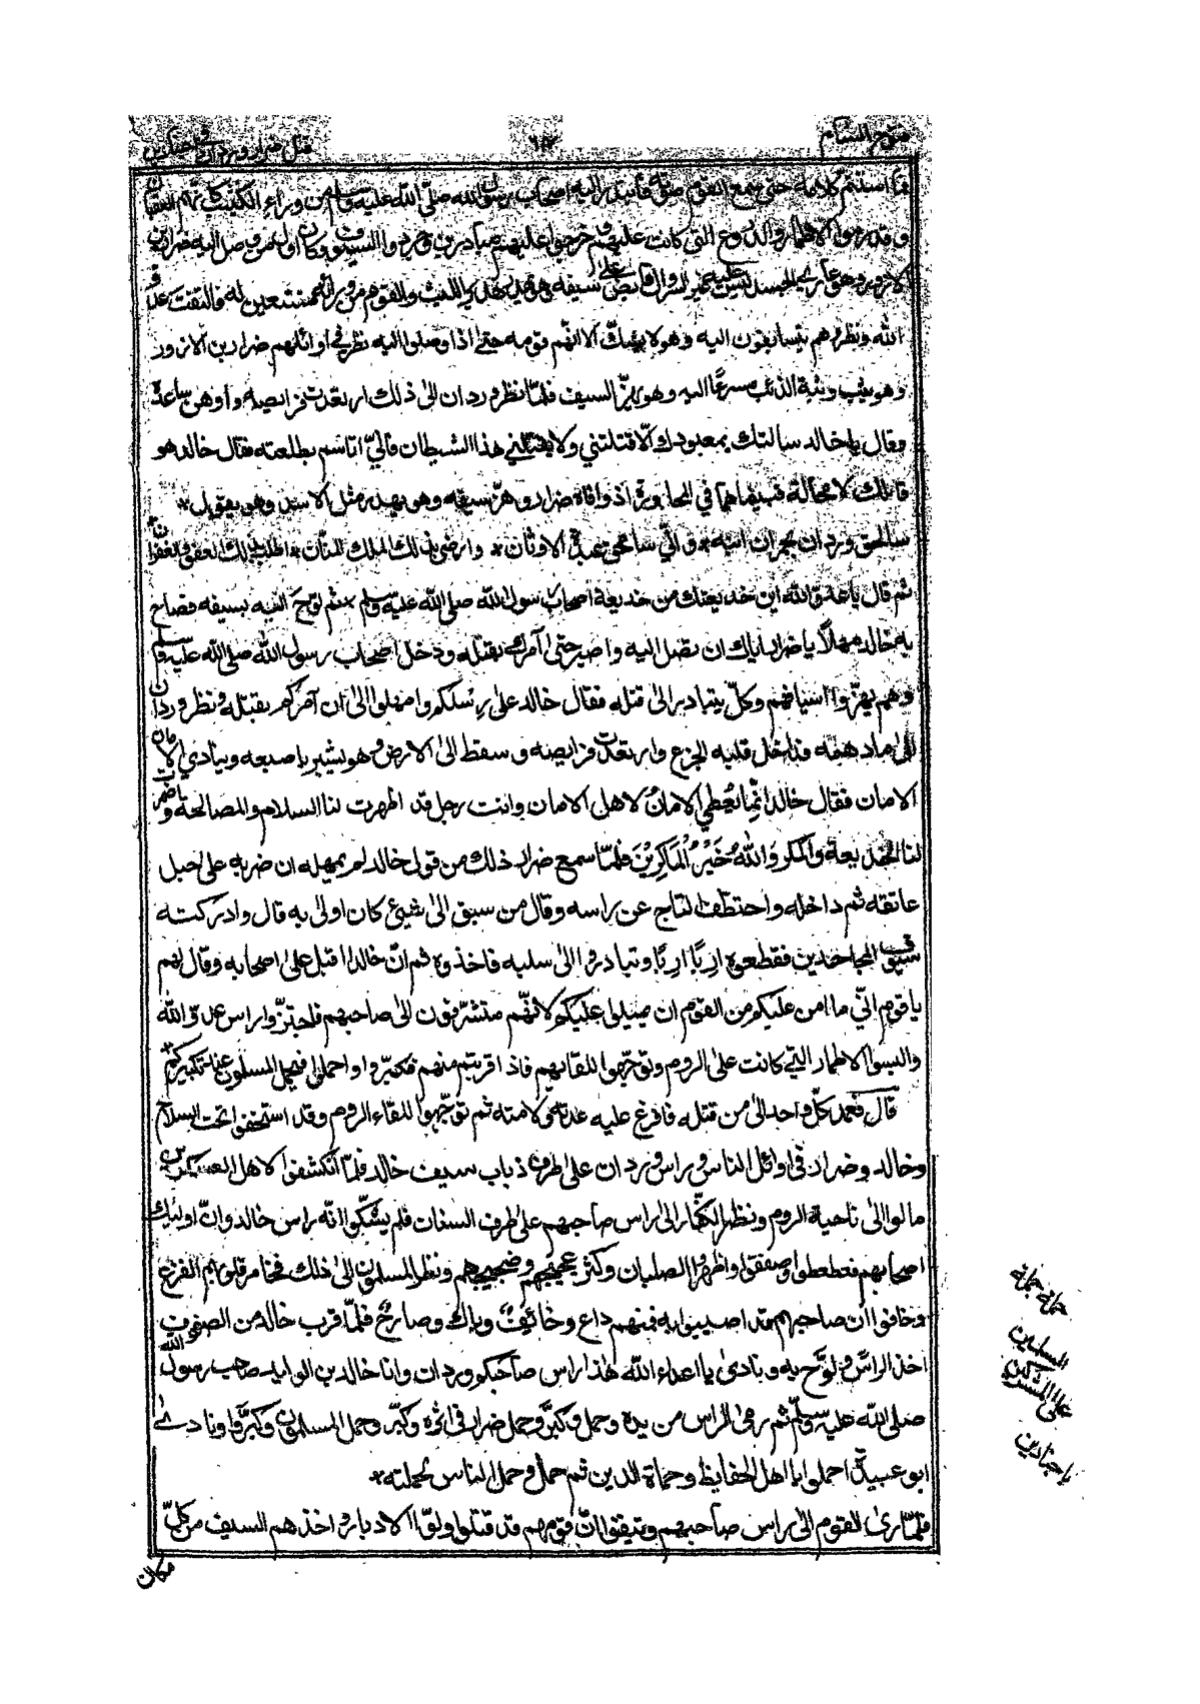 فتوح الشام
قتل ضرار وردان في اجنادين
فما استتم كلامه حتى سمع القوم صوته فابتدر اليه اصحاب رسول الله صلّى الله عليه وسلم من وراء الكثيب كانهم العقبان
وقد رموا الاطمار والدروع التي كانت عليهم وخرجوا عليهم مبادرين وجردوا السيوف وكان اول من وصل اليه ضرار بن
الازور وهو عاري الجسد ليس عليه غير السراويل قابض على سيفه وهو يهدر كالليث والقوم من ورائه متتبعين له فالتفت عدو
الله ونظرهم يتسابقون اليه وهو لا يشكّ الا انّهم قومه حتى اذا وصلوا اليه نظر في اوائلهم ضرار بن الازور
وهو يثب وثبة الذئب مسرعًا اليه وهو يهزّ السيف فلمّا نظر وردان الى ذلك ارتعدت فرائصه واوهن ساعده
وقال يا خالد سالتك بمعبودك الّا قتلتني ولا يقتلني هذا الشيطان فانّي اتاشم بطلعته فقال خالد هو
قاتلك لا محالة فبينما هما في المحاورة اذ وافاه ضرار وهزّ سيفه وهو يهدر مثل الاسد وهو يقول *
سالحق وردان بحمران ابنه * وانّي ساعمي عبدة الاوثان * وارضي بذلك الملك المنّان * اطلب بذلك العفو والغفران
ثم قال يا عدوّ الله اين خديعتك من خديعة اصحاب رسول الله صلى الله عليه وسلم * ثم لوّح اليه بسيفه فصاح
به خالد مهلاً يا ضرار اياك ان تصل اليه واصبر حتى آمرك بقتله ودخل اصحاب رسول الله صلّى الله عليه وسلم
وهم يهزّوا اسيافهم وكلّ يتبادر الى قتله فقال خالد على رسلكم وامهلوا الى ان آمركم بقتله ونظر وردان
الى ما دهمه فداخل قلبه الجزع وارتعدت فرائصه وسقط الى الارض وهو يشير باصبعه وينادي الامان
الامان فقال خالد انّما يُعطي الامانُ لاهل الامان وانت رجل قد اظهرت لنا السلام والمصالحة واضمرت
لنا الخديعة والمكر وَاللّٰهُ خَيْرُ الْمَاكِرِيْنَ فلمّا سمع ضرار ذلك من قول خالد لم يمهله ان ضربه على حبل
عاتقه ثم داخله واختطف التاج عن راسه وقال من سبق الى شيئ كان اولى به قال وادركته
سيوف المجاهدين فقطعوه اِربًا اِربًا وتبادروا الى سلبه فاخذوه ثم انّ خالدا اقبل على اصحابه وقال لهم
يا قوم انّي ما امن عليكم من القوم ان يميلوا عليكم لانّهم متشرّفون الى صاحبهم فاجتزّوا راس عدوّ الله
والبسوا الاطمار التي كانت على الروم وتوجّهوا للقائهم فاذا قربتم منهم فكبّروا واحملوا فيحمل المسلمون عند تكبيركم
قال فعمد كلّ واحد الى من قتله فافرغ عليه عدته ولامته ثم توجّهوا للقاء الروم وقد استخفوا تحت السلاح
وخالد وضرار في اوائل الناس وراس وردان على طرف ذباب سيف خالد فلمّا انكشفوا لاهل العسكرين
مالوا الى ناحية الروم ونظر الكفّار الى راس صاحبهم على طرف السنان فلم يشكّوا انّه راس خالد وانّ اولئك
اصحابهم فعطعطوا وصفقوا واظهروا الصلبان وكثر عجيجهم وضجيجهم ونظر المسلمون الى ذلك فخامر قلوبهم الفزع
وخافوا ان صاحبهم قد اصيبوا به فمنهم داع وخائف وباك وصارخ فلمّا قرب خالد من الصفوف
اخذ الراس ولوّح به ونادى يا اعداء الله هذا راس صاحبكم وردان وانا خالد بن الوليد صاحب رسول الله
صلى الله عليه وسلّم ثم رمى الراس من يده وحمل وكبّر وحمل ضرار في اثره وكبّر وحمل المسلمون وكبّروا ونادى
ابو عبيدة احملوا يا اهل الحفايظ وحماة الدين ثم حمل وحمل الناس بحملته *
فلمّا رأى القوم الى راس صاحبهم وتيقنوا انّ قومهم قد قتلوا ولوّا الادبار واخذهم السيف من كلّ
مكان
حملة
المسلمين
على المشركين
باجنادين